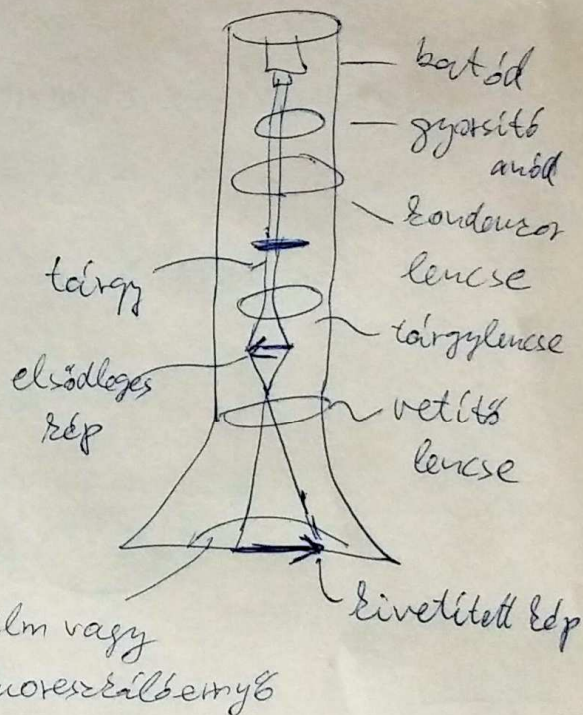 katód
gyorsító
anód
kondenzor
lencse
tárgy
tárgylencse
elsődleges
kép
vetítő
lencse
kivetített kép
lm vagy
uoreszkálóernyő